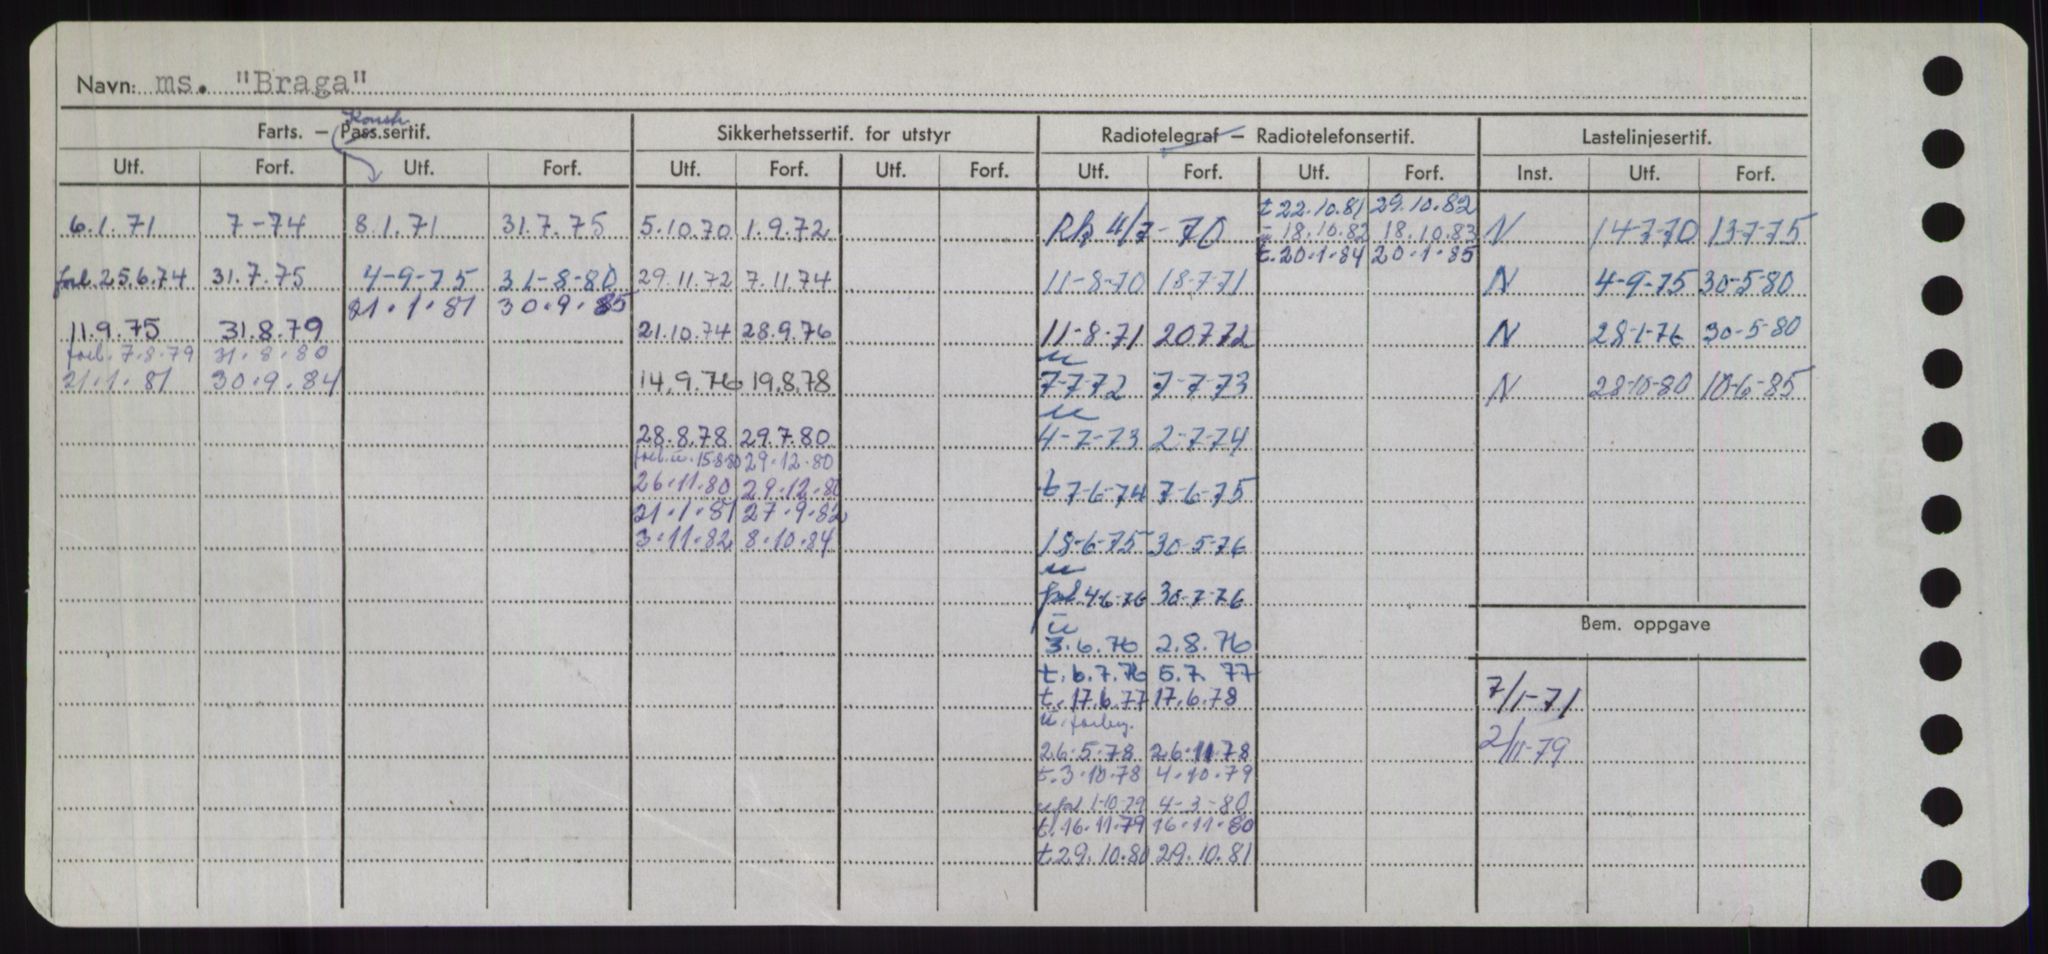 Navn: ms. "Braga"
Konstr.
Farts. – Pass.sertif. Sikkerhetssertif. for utstyr Radiotelegraf – Radiotelefonsertif. Lastelinjesertif.
Utf. Forf. Utf. Forf. Utf. Forf. Utf. Forf. Utf. Forf. Utf. Forf. Inst. Utf. Forf.
t 22.10.81 29.10.82
6.1.71 7-74 8.1.71 31.7.75 5.10.70 1.9.72 4/7-70 ū 18.10.82 18.10.83 N 14-7-70 13-7-75
t. 20.1.84 20.1.85
forl. 25.6.74 31.7.75 4-9-75 31-8-80 29.11.72 7.11.74 11-8-70 18-7-71 N 4-9-75 30-5-80
21.1.81 30.9.85
11.9.75 31.8.79 21.10.74 28.9.76 11-8-71 20772 N 28-1-76 30-5-80
forl. 7.8.79 31.8.80 u
21.1.81 30.9.84 14.9.76 19.8.78 7-7-72 7-7-73 N 28-10-80 10-6-85
u
28.8.78 29.7.80 4-7-73 2-7-74
forl. u. 15.8.80 29.12.80
26.11.80 29.12.80 t 7-6-74 7-6-75
21.1.81 27.9.82
3.11.82 8.10.84 18-6-75 30-5-76
u
forl 4-6-76 30-7-76
Bem. oppgave
ū
3.6.76 2.8.76
t. 6.7.76 5.7.77
7/1-71
t. 17.6.77 17.6.78
u. forleng.
2/11-79
26.5.78 26.11.78
t. 3.10.78 4.10.79
u forl 1-10-79 4-3-80
t. 16.11.79 16.11.80
t. 29.10.80 29.10.81